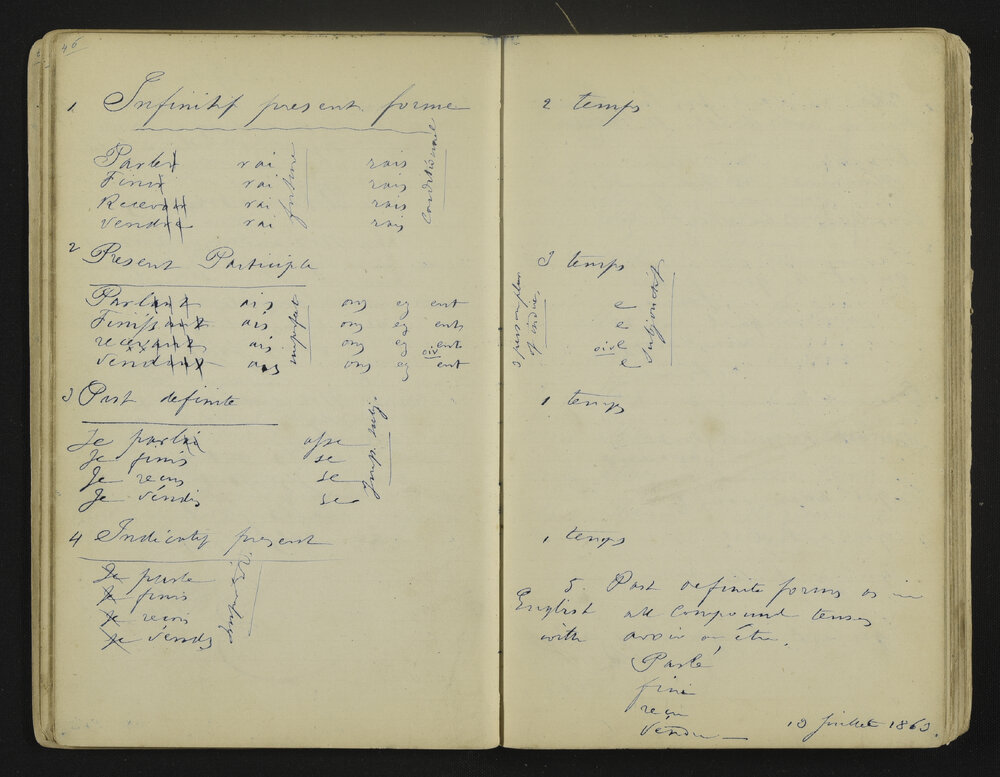 46
1 Infinitif present forme
Parler rai rais
Finir rai rais
Recevoir rai rais
Vendre rai rais
future
Conditionnel
2 Present Participle
Parlant ais ons ez ent
Finissant ais ons ez ent
recevant ais ons ez oivent
Vendant ais ons ez ent
imparfait
3 Past definite
Je parlai asse
Je finis se
Je recus se
Je véndis se
Imp. subj.
4 Indicatif present
Je parle
Je finis
Je recois
Je vénds
2 temps
3 temps
3 pers on plur
e
e
oive
e
Subjonctif
1 temps
1 temps
5. Past definite forms as in
English all Compound tenses
with avoir ou étre.
Parlé
fini
reçu
Véndu
13 Juillet 1863.